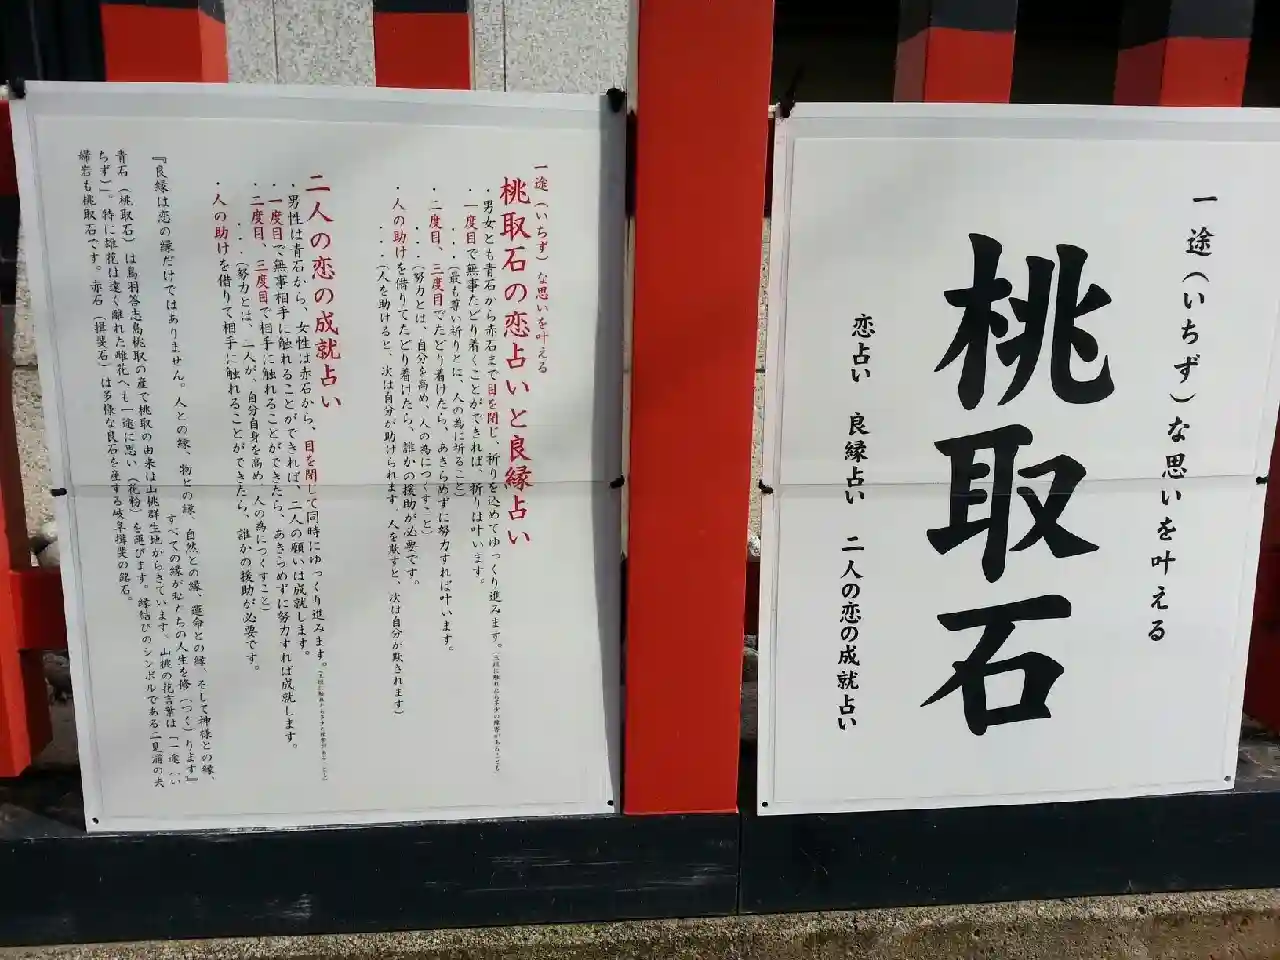 一途（いちず）な思いを叶える
桃取石
恋占い 良縁占い 二人の恋の成就占い
一途（いちず）な思いを叶える
桃取石の恋占いと良縁占い
・男女とも青石から赤石まで目を閉じ、祈りを込めてゆっくり進みます。
・一度目で無事たどり着くことができれば、祈りは叶います。
・・・（最も尊い祈りとは、人の為に祈ること）
・二度目、三度目でたどり着けたら、あきらめずに努力すれば叶います。
・・・（努力とは、自分を高め、人の為につくすこと）
・人の助けを借りてたどり着けたら、誰かの援助が必要です。
・・・（人を助けると、次は自分が助けられます。人を欺すと、次は自分が欺されます）
二人の恋の成就占い
・男性は青石から、女性は赤石から、目を閉じて同時にゆっくり進みます。
・一度目で無事相手に触れることができれば、二人の願いは成就します。
・二度目、三度目で相手に触れることができたら、あきらめずに努力すれば成就します。
・・・（努力とは、二人が、自分自身を高め、人の為につくすこと）
・人の助けを借りて、相手に触れることができたら、誰かの援助が必要です。
『良縁は恋の縁だけではありません。人との縁、物との縁、自然との縁、運命との縁、そして神様との縁、
すべての縁が私たちの人生を修（つく）ります』
青石（桃取石）は鳥羽答志島桃取の産で桃取の由来は山桃群生地からきています。山桃の花言葉は「一途（い
ちず）」。特に雄花は遠く離れた雌花へも一途に思い（花粉）を運びます。縁結びのシンボルである二見浦の夫
婦岩も桃取石です。赤石（揖斐石）は多様な良石を産する岐阜揖斐の銘石。